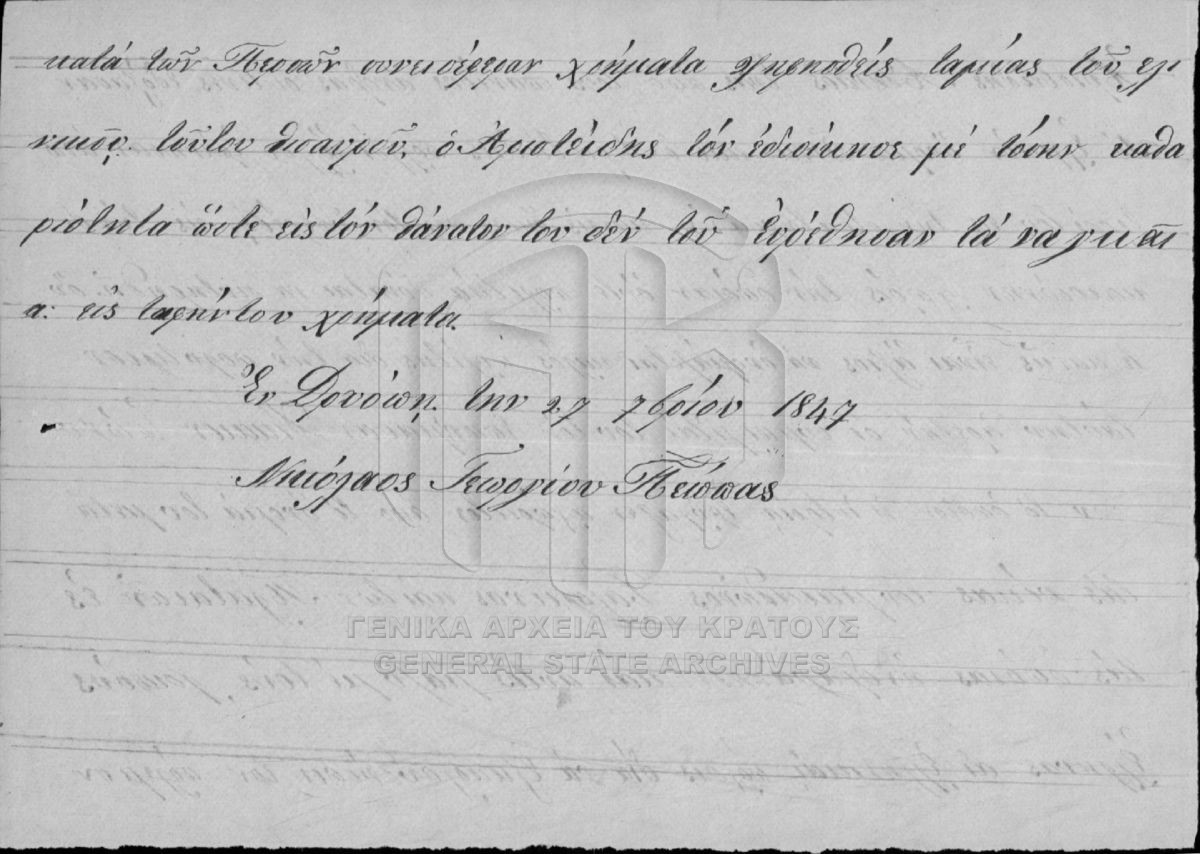 κατά των Περσών συνεισέφεραν χρήματα κληρωθείς ταμίας τοῦ ελι
νικοῦ τοῦτου θισαυροῦ, ὁ Ἀριστείδης τόν ἐδιοίκησε μέ τόσην καθα
ριότητα ὥστε εἰς τόν θάνατον του δέν τοῦ Εὑρέθησαν τά ναγκαῖ
α: εἰς ταφήν του χρήματα.
Ἐν Δρυόπη την 27 7βρίου 1847
Νικόλαος Γεωργίου
ΓΕΝΙΚΑ ΑΡΧΕΙΑ ΤΟΥ ΚΡΑΤΟΥΣ
GENERAL STATE ARCHIVES